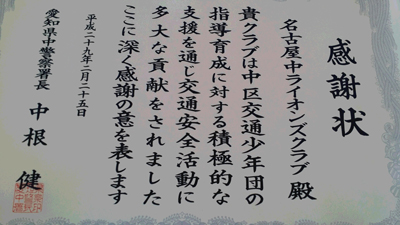 感謝状
名古屋中ライオンズクラブ 殿
貴クラブは中区交通少年団の
指導育成に対する積極的な
支援を通じ交通安全活動に
多大な貢献をされました
ここに深く感謝の意を表します
平成二十九年二月二十五日
愛知県中警察署長 中根 健